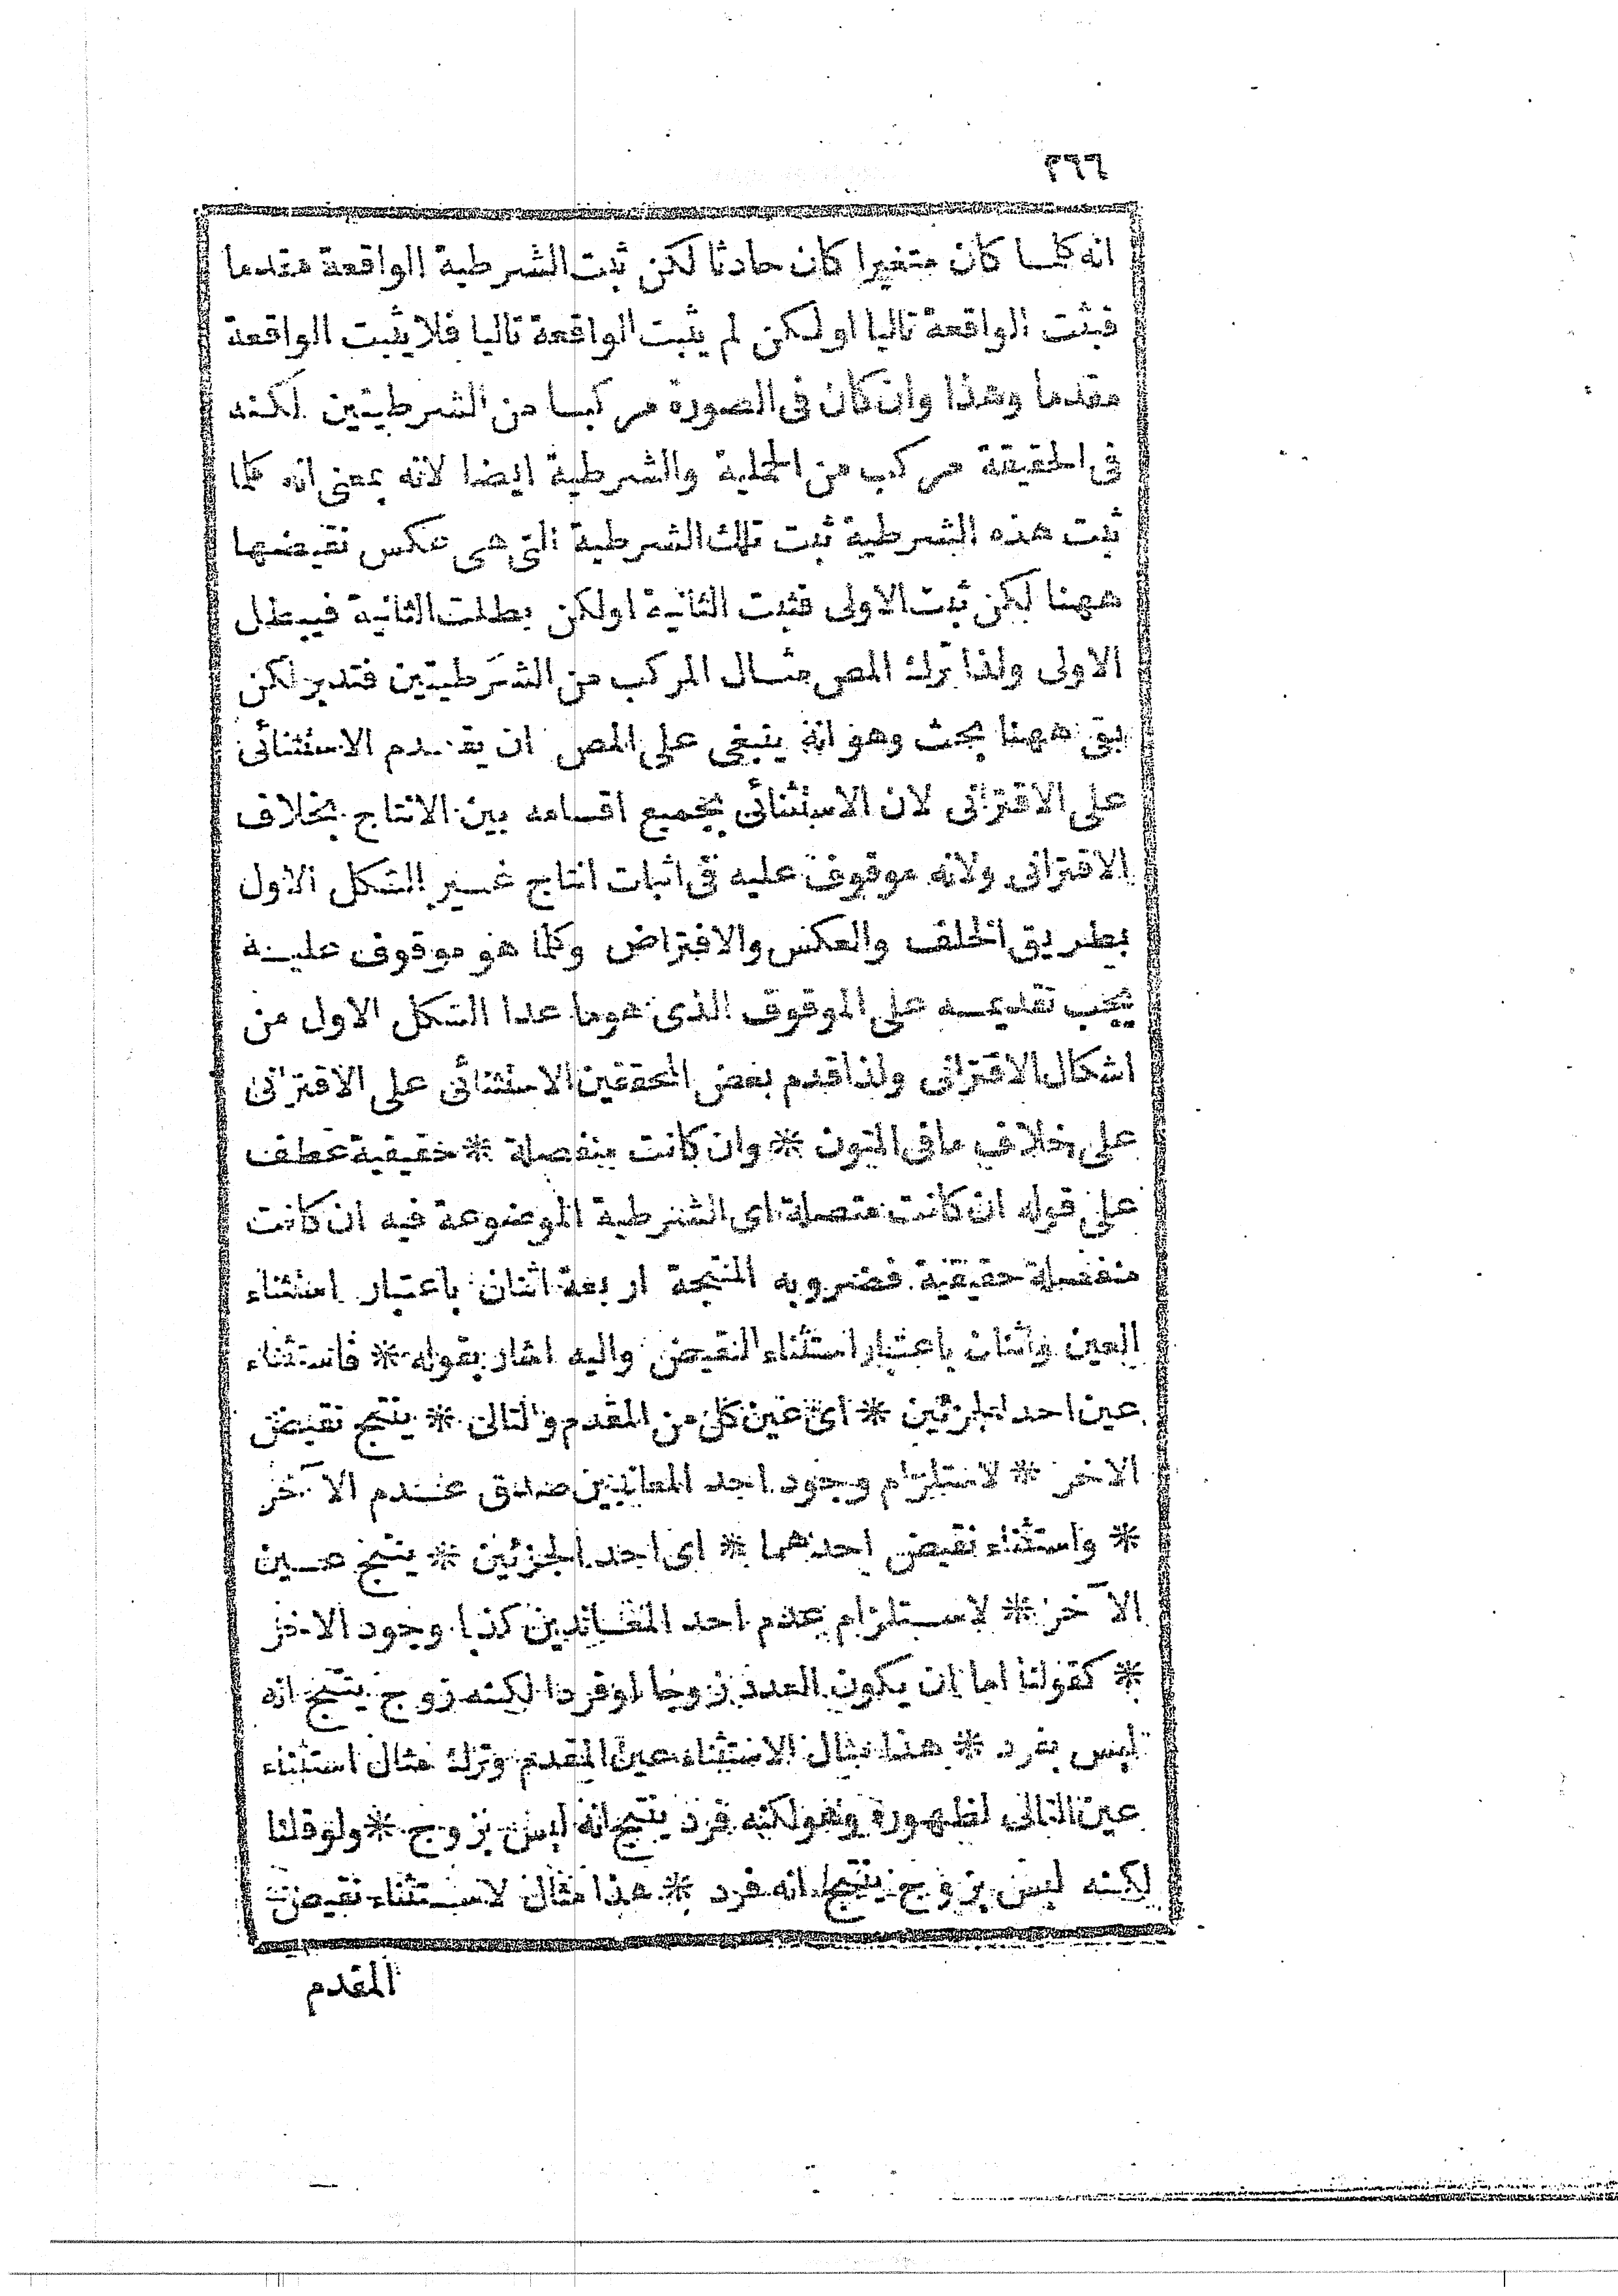 ٢٦٦
انه كلما كان متغيرا كان حادثا لكن ثبت الشرطية الواقعة مقدما
فبثت الواقعة تاليا او لكن لم يثبت الواقعة تاليا فلا يثبت الواقعة
مقدما وهذا وان كان فى الصورة مركبا من الشرطيتين لكنه
فى الحقيقة مركب من الحملية والشرطية ايضا لانه بمعنى انه كلما
ثبت هذه الشرطية ثبت تلك الشرطية التى هى عكس نقيضها
ههنا لكن ثبت الاولى فثبت الثانية او لكن بطلت الثانية فيبطل
الاولى ولذا ترك المص مثال المركب من الشرطيتين فتدبر لكن
بقى ههنا بحث وهو انه ينبغى على المص ان يقدم الاستثنائى
على الاقترانى لان الاستثنائى بجميع اقسامه بين الانتاج بخلاف
الاقترانى ولانه موقوف عليه فى اثبات انتاج غير الشكل الاول
بطريق الخلف والعكس والافتراض وكلما هو موقوف عليه
يجب تقديمه على الموقوف الذى هو ما عدا الشكل الاول من
اشكال الاقترانى ولذا قدم بعض المحققين الاستثنائى على الاقترانى
على خلاف ما فى المتون * وان كانت منفصلة * حقيقية عطف
على قوله ان كانت متصلة اى الشرطية الموضوعة فيه ان كانت
منفصلة حقيقية فضروبه المنتجة اربعة اثنان باعتبار استثناء
العين واثنان باعتبار استثناء النقيض واليه اشار بقوله * فاستثناء
عين احد الجزئين * اى عين كل من المقدم والتالى * ينتج نقيض
الاخر * لاستلزام وجود احد المعاندين صدق عدم الآخر
* واستثناء نقيض احدهما * اى احد الجزئين * ينتج عين
الآخر * لاستلزام عدم احد المعاندين كذا وجود الاخر
* كقولنا اما ان يكون العدد زوجا او فردا لكنه زوج ينتج انه
ليس بفرد * هذا مثال الاستثناء عين المقدم وترك مثال استثناء
عين التالى لظهوره وهو لكنه فرد ينتج انه ليس بزوج * ولو قلنا
لكنه ليس بزوج ينتج انه فرد * هذا مثال لاستثناء نقيض
المقدم